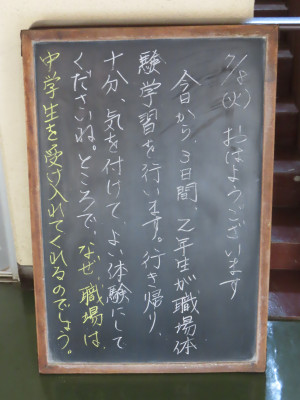 7/8(火) おはようございます
今日から、3日間、2年生が、職場体
験学習を行います。行き帰り、
十分、気を付けて、よい体験にして
くださいね。ところで、なぜ、職場は、
中学生を受け入れてくれるのでしょう。